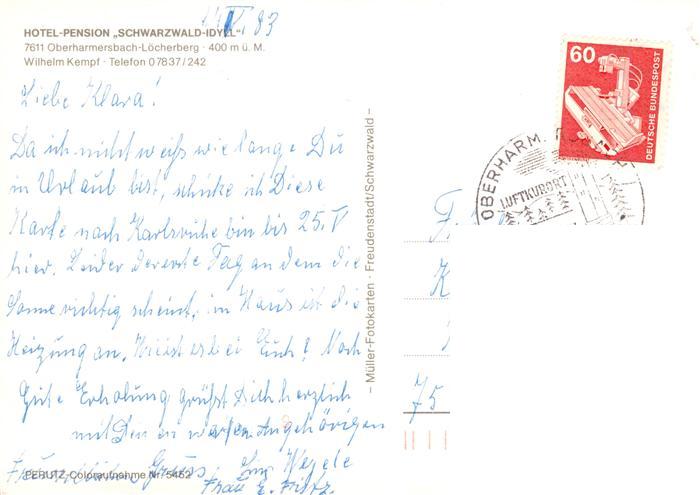 14.V.83
HOTEL-PENSION „SCHWARZWALD-IDYLL"
7611 Oberharmersbach-Löcherberg · 400 m ü. M.
Wilhelm Kempf · Telefon 07837/242
Liebe Klara!
Da ich nicht weiß wie lange Du
in Urlaub bist, schicke ich Diese
Karte nach Karlsruhe bin bis 25.V
hier. Leider der erste Tag an dem die
Sonne richtig scheint, im Haus ist die
Heizung an. Wie ist es bei Euch? Noch
Gute Erholung grüßt Dich herzlich
mit Angehörigen
Gruss
Frau E.
PERUTZ-Coloraufnahme Nr. 5452
– Müller-Fotokarten · Freudenstadt/Schwarzwald –
60
DEUTSCHE BUNDESPOST
OBERHARM
LUFTKURORT
F
K
75